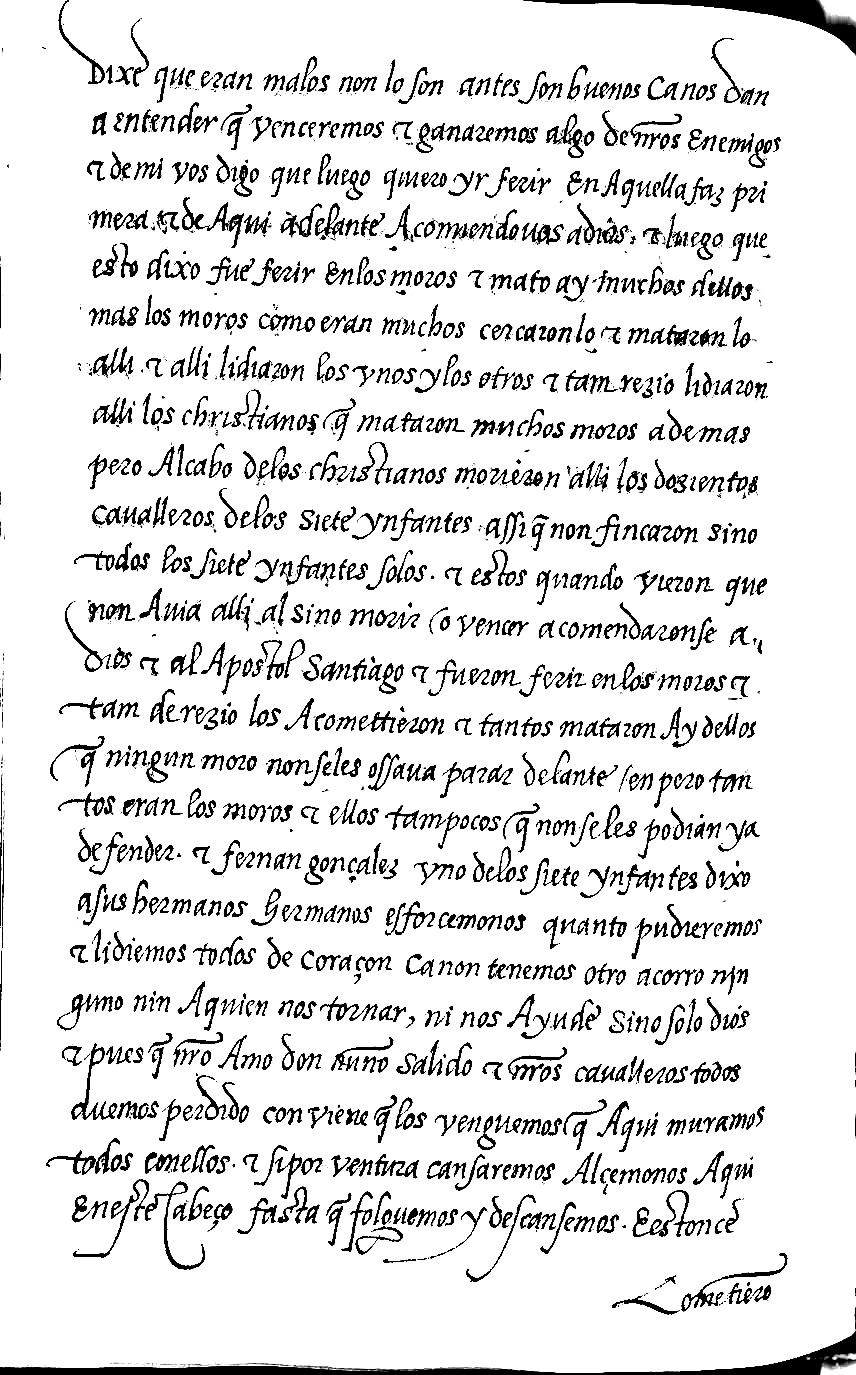 Dixe que eran malos non lo son antes son buenos Ca nos dan
a entender q̃ venceremos & ganaremos algo de nr̃os Enemigos
& de mi vos digo que luego quiero yr ferir En Aquella faz pri
mera & de Aqui adelante Acomiendo uos a dios, & luego que
esto dixo fue ferir En los moros & mato ay muchos dellos
mas los moros como eran muchos cercaron lo & mataron lo
alli & alli lidiaron los vnos y los otros & tam rezio lidiaron
alli los christianos q̃ mataron muchos moros ademas
pero Al cabo de los christianos morieron alli los dozientos
caualleros de los siete ynfantes assi q̃ non fincaron sino
todos los siete ynfantes solos. & estos quando vieron que
non Auia alli al sino morir o vencer acomendaronse a
Dios & al Apostol Santiago & fueron ferir en los moros &
tam de rezio los Acomettieron & tantos mataron Ay dellos
q̃ ningun moro non seles ossaua parar delante / en pero tan
tos eran los moros & ellos tampocos q̃ non se les podian ya
defender. & fernan gonçalez vno de los siete ynfantes dixo
a sus hermanos hermanos esforcemonos quanto pudieremos
& lidiemos todos de coraçon Ca non tenemos otro acorro nin
guno nin A quien nos tornar, ni nos Ayude sino solo dios
& pues q̃ nr̃o Amo don nunño Salido & nr̃os caualleros todos
auemos perdido conviene q̃ los venguemos q̃ Aqui muramos
todos con ellos. & si por ventura cansaremos Alçemonos Aqui
En este Cabeço fasta q̃ folguemos y descansemos. E estonce
Cometiero